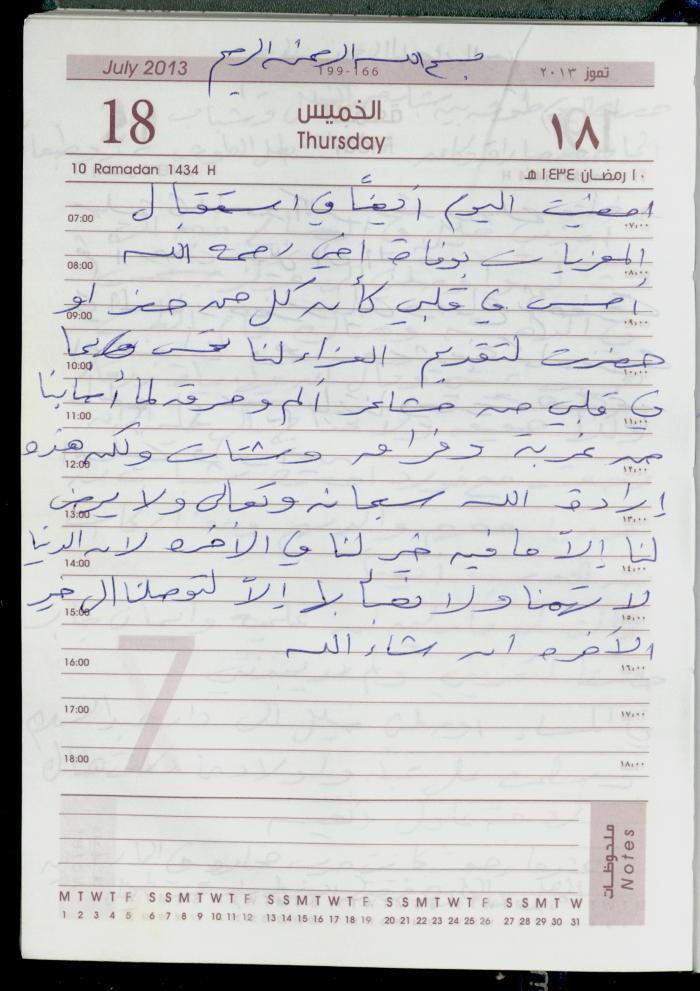 بسم الله الرحمن الرحيم
July 2013 199-166 تموز ٢٠١٣
18 الخميس ١٨
Thursday
10 Ramadan 1434 H ١٠ رمضان ١٤٣٤ هـ
امضيت اليوم أيضاً في استقبال
07:00 ٠٧:٠٠
المعزيات بوفاة اخي رحمه الله
08:00 ٠٨:٠٠
أحس في قلبي كأن كل من حضر او
09:00 ٠٩:٠٠
حضرت لتقديم العزاء لنا تحس بما
10:00 ١٠:٠٠
في قلبي من مشاعر ألم وحرقه لما أصابنا
11:00 ١١:٠٠
من غربة وفراق وشتات ولكن هذه
12:00 ١٢:٠٠
إرادة الله سبحانه وتعالى ولا يرضى
13:00 ١٣:٠٠
لنا إلا ما فيه خير لنا في الآخره لان الدنيا
14:00 ١٤:٠٠
لا تهمنا ولا نعبأ بها إلا لتوصلنا الى خير
15:00 ١٥:٠٠
الآخره ان شاء الله
16:00 ١٦:٠٠
17:00 ١٧:٠٠
18:00 ١٨:٠٠
7
ملحوظات
Notes
M T W T F S S M T W T F S S M T W T F S S M T W T F S S M T W
1 2 3 4 5 6 7 8 9 10 11 12 13 14 15 16 17 18 19 20 21 22 23 24 25 26 27 28 29 30 31